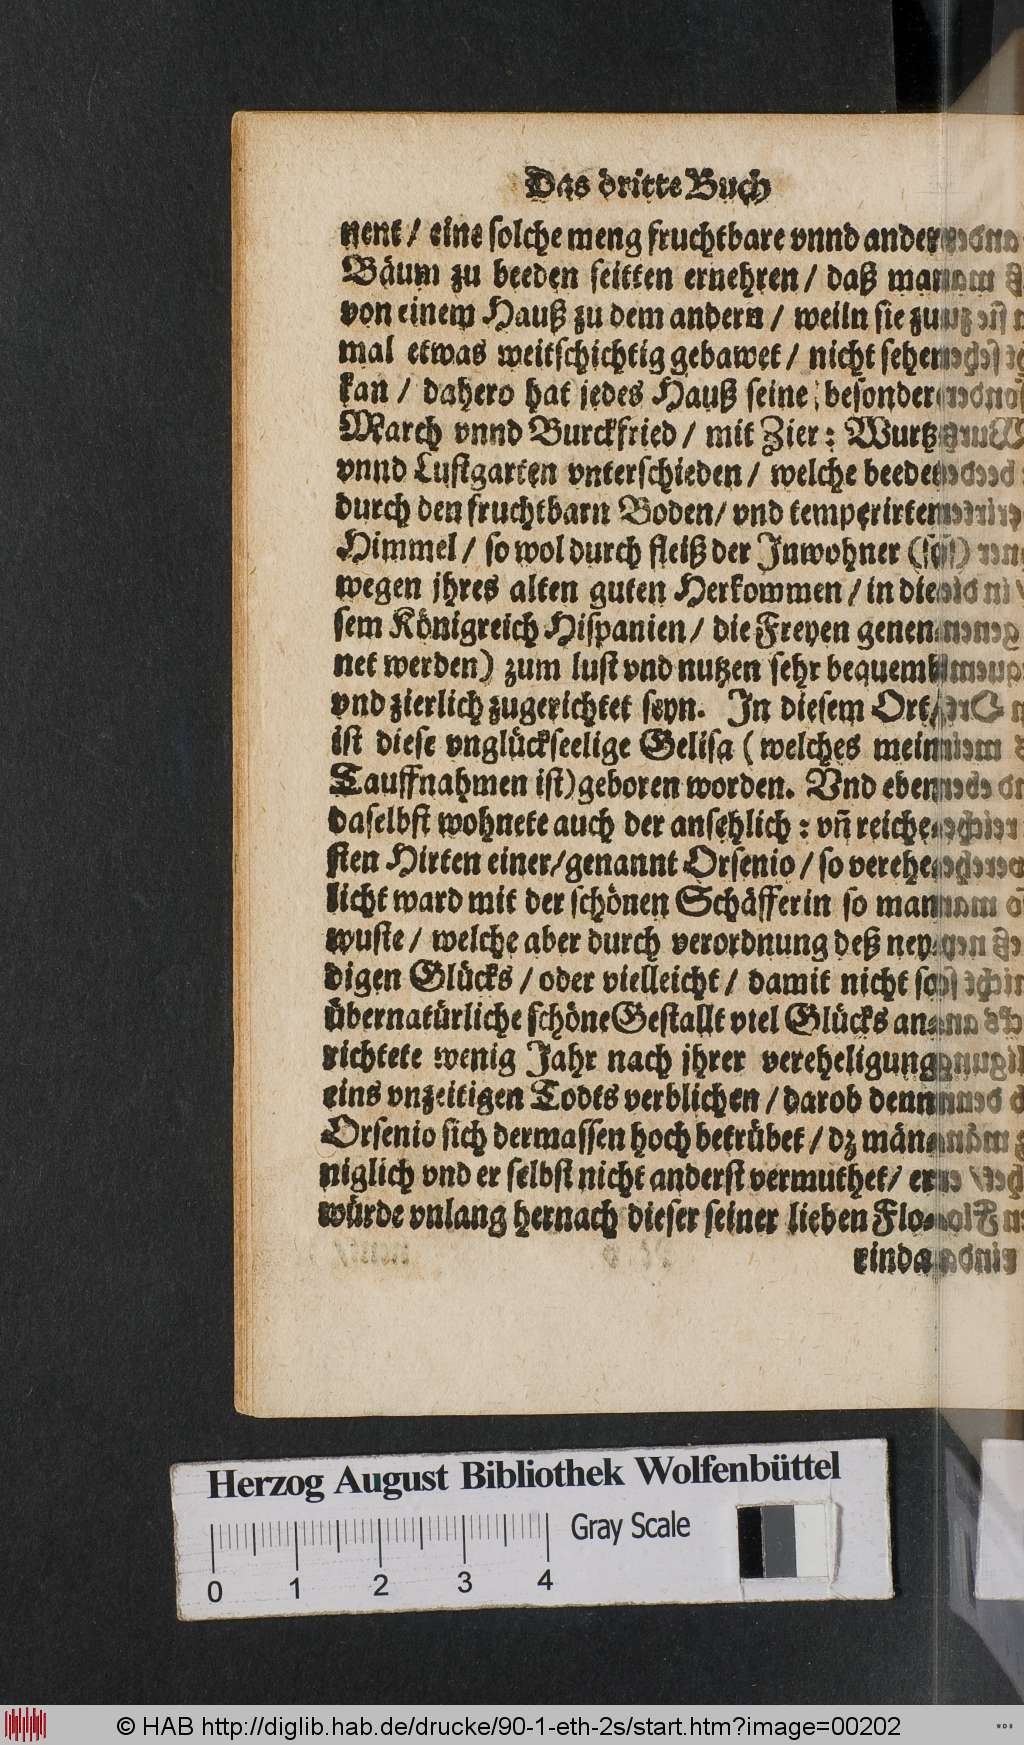 Das dritte Buch
nent / eine solche meng fruchtbare vnnd ander
Bäum zu beeden seitten ernehren / daß man
von einem Hauß zu dem andern / weiln sie zu
mal etwas weitschichtig gebawet / nicht sehen
kan / dahero hat jedes Hauß seine besondere
March vnnd Burckfried / mit Zier: Wurtz
vnnd Lustgarten vnterschieden / welche beede
durch den fruchtbarn Boden / vnd temperirten
Himmel / so wol durch fleiß der Inwohner (so
wegen jhres alten guten Herkommen / in die
sem Königreich Hispanien / die Freyen genen
net werden) zum lust vnd nutzen sehr bequem
vnd zierlich zugerichtet seyn. In diesem Ort /
ist diese vnglückseelige Gelisa (welches mein
Tauffnahmen ist) geboren worden. Vnd eben
daselbst wohnete auch der ansehlich: vñ reiche
sten Hirten einer / genannt Orsenio / so verehe
licht ward mit der schönen Schäfferin so man
wuste / welche aber durch verordnung deß ney
digen Glücks / oder vielleicht / damit nicht so
übernatürliche schöne Gestallt viel Glücks an
richtete wenig Jahr nach jhrer vereheligung
eins vnzeitigen Todts verblichen / darob denn
Orsenio sich dermassen hoch betrübet / dz män
niglich vnd er selbst nicht anderst vermuthet / er
würde vnlang hernach dieser seiner lieben Flo
rinda
Herzog August Bibliothek Wolfenbüttel
Gray Scale
0 1 2 3 4
© HAB http://diglib.hab.de/drucke/90-1-eth-2s/start.htm?image=00202